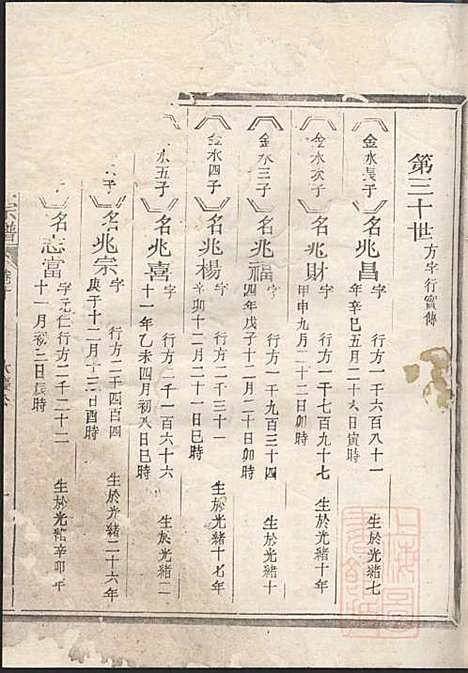 第三十世方字行實傳
金水長子
名兆昌字 行方一千六百八十一 生於光緒七
年辛巳五月二十九日寅時
金水次子
名兆財字 行方一千七百九十七 生於光緒十年
甲申九月二十二日卯時
金水三子
名兆福字 行方一千九百三十四 生於光緒十
四年戊子十二月二十日卯時
金水四子
名兆楊字 行方二千三十一 生於光緒十七年
辛卯十二月二十一日巳時
水五子
名兆喜字 行方二千一百六十六 生於光緒二
十一年乙未四月初八日巳時
子
名兆宗字 行方二千四百四 生於光緒二十六年
庚子十二月十三日酉時
子
名志富字元仁行方二千二十二 生於光緒辛卯年
十一月初二日辰時
宗譜